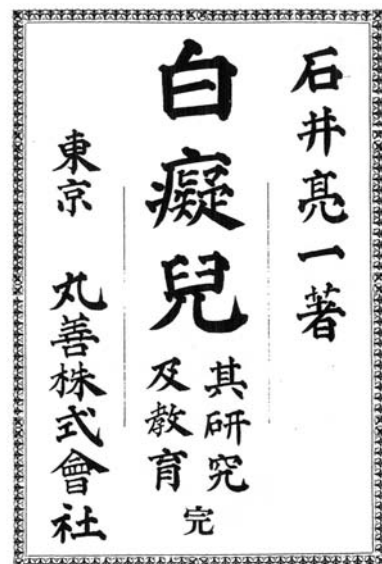 石井亮一著
白癡兒
其研究
及教育
完
東京 丸善株式會社